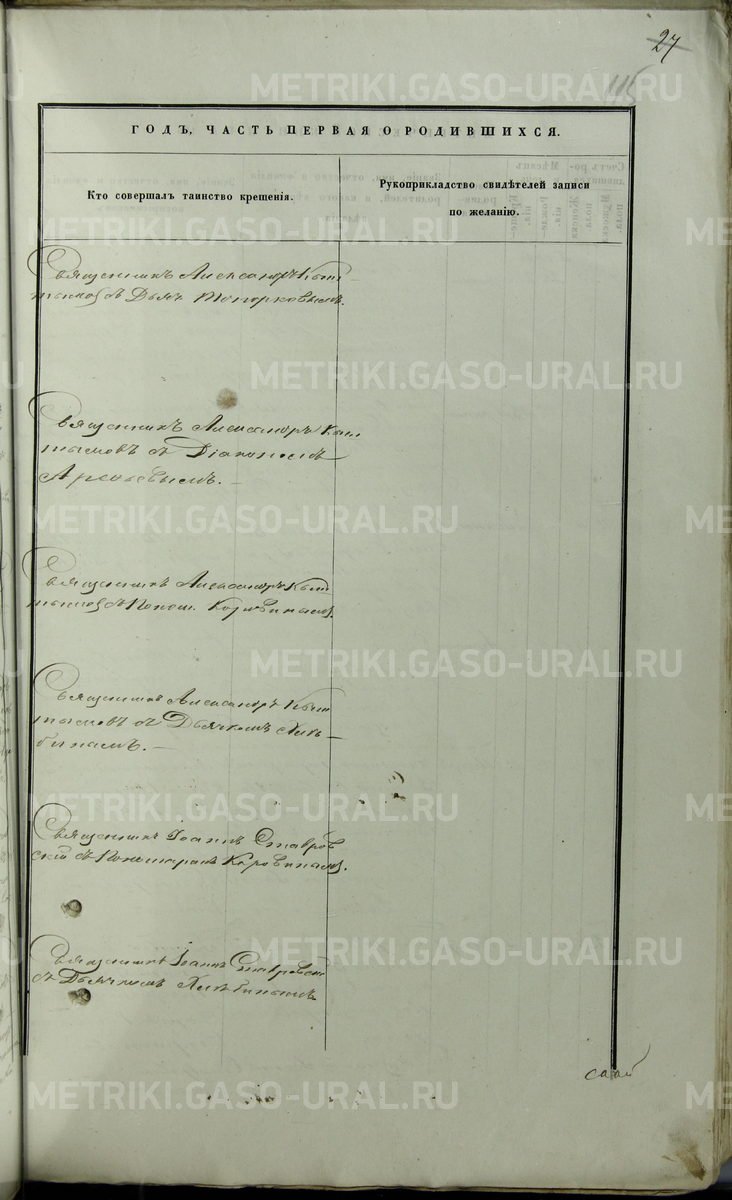 27
115
ГОДЪ, ЧАСТЬ ПЕРВАЯ О РОДИВШИХСЯ.
Кто совершалъ таинство крещенія.
Рукоприкладство свидѣтелей записи
по желанію.
Священникъ Александръ Кыш
тымовъ съ Дьяч. Топорковымъ.
Священникъ Александръ Кыш
тымовъ съ Діакономъ
Арсеньевымъ.
Священникъ Александръ Кыш
тымовъ съ Поном. Коровинымъ.
Священникъ Александръ Кыш
тымовъ съ Дьячкомъ Хлѣ-
бинымъ.
Священникъ Іоаннъ Ставров
скій съ Пономаремъ Коровинымъ.
Священникъ Іоаннъ Ставровскій
съ Дьячкомъ Хлѣбинымъ.
METRIKI.GASO-URAL.RU